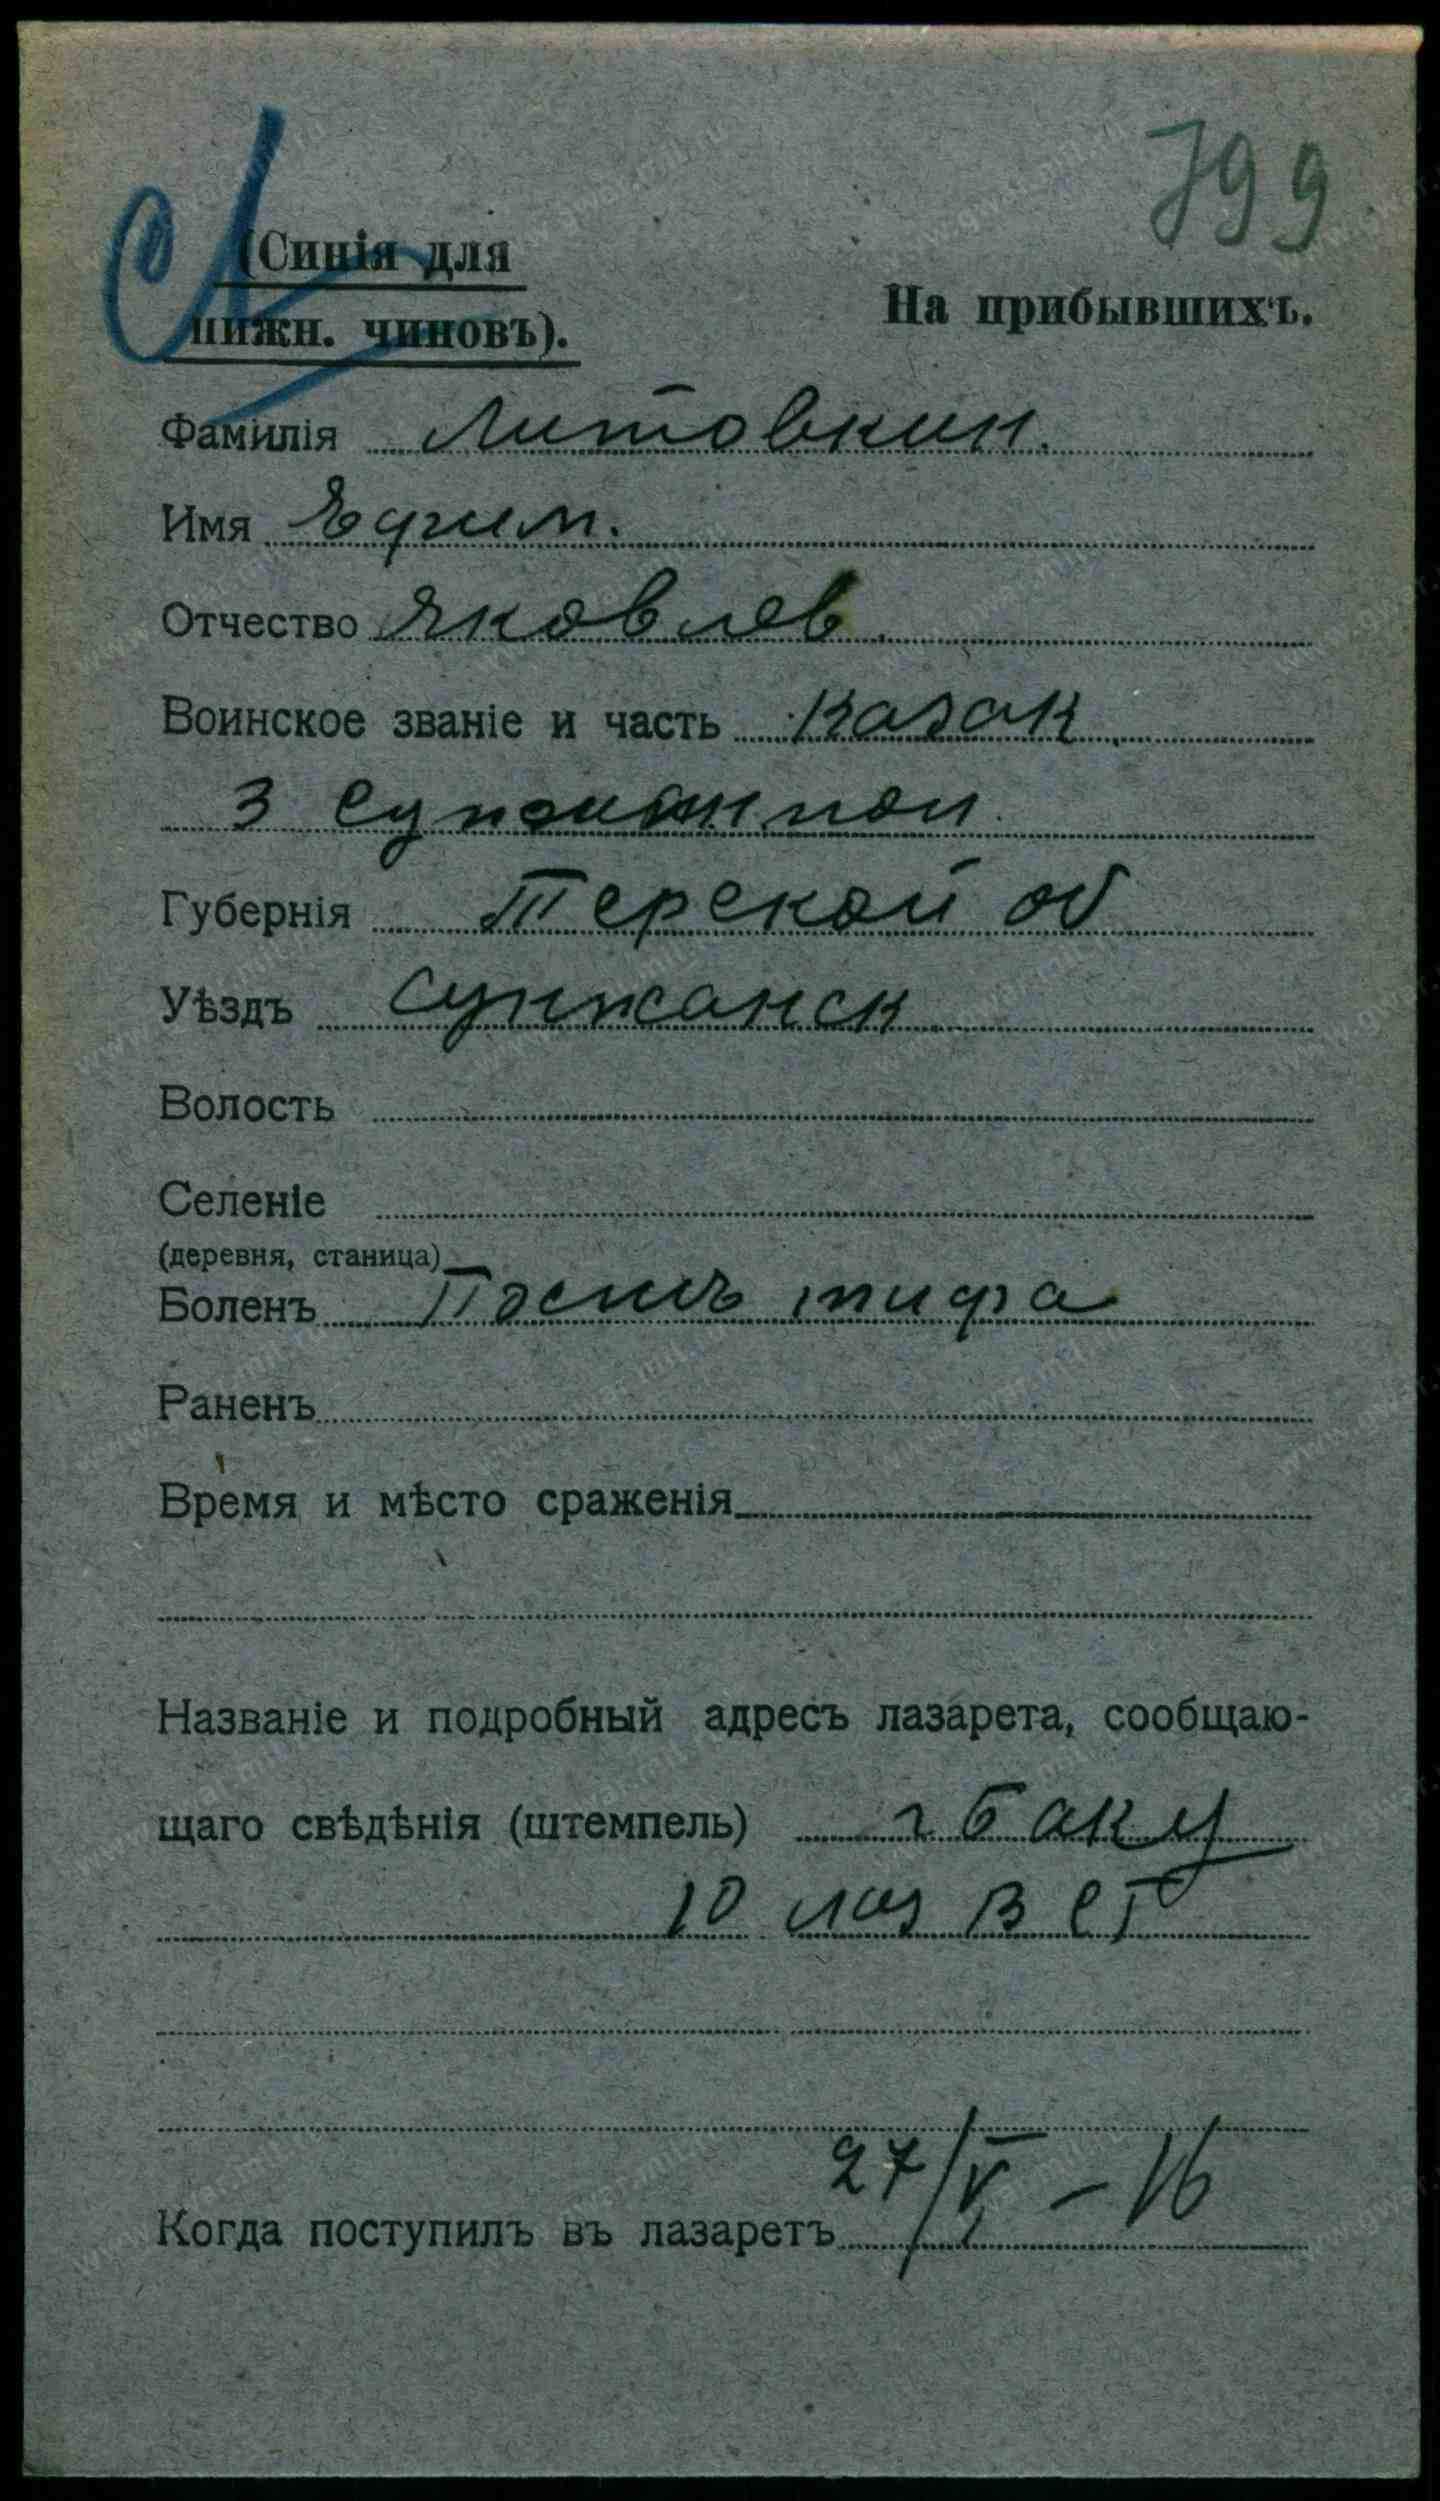 799
(Синія для
нижн. чиновъ).
На прибывшихъ.
Фамилія Литовкин.
Имя Ефим.
Отчество Яковлев.
Воинское званіе и часть казак
3 пол
Губернія Терской об
Уѣздъ Сунжанск
Волость
Селеніе
(деревня, станица)
Боленъ Послъ тифа
Раненъ
Время и мѣсто сраженія
Названіе и подробный адресъ лазарета, сообщаю-
щаго свѣдѣнія (штемпель) г Баку
10 лаз В СГ
Когда поступилъ въ лазаретъ 27/V – 16